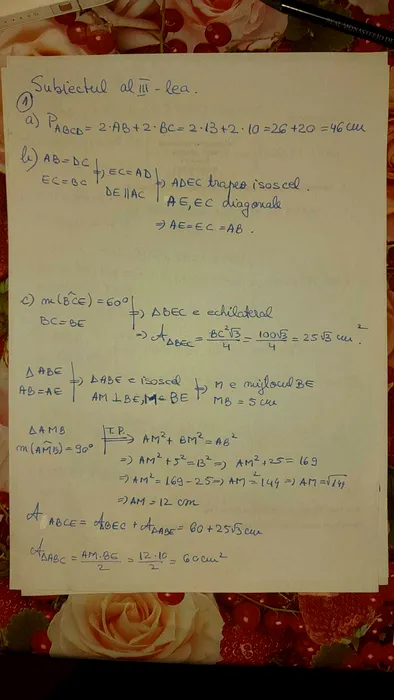 Subiectul al III-lea.
①
a) P ABCD = 2·AB+2·BC = 2·13+2·10 = 26+20 = 46 cm
b) AB=DC ⇒ EC=AD ⇒ ADEC trapez isoscel.
EC=BC DE∥AC AE, EC diagonale
⇒ AE=EC=AB.
c) m(BCE)=60° ⇒ ΔBEC e echilateral
BC=BE ⇒ A ΔBEC = BC²√3/4 = 100√3/4 = 25√3 cm²
ΔABE ⇒ ΔABE e isoscel ⇒ M e mijlocul BE
AB=AE AM⊥BE, M∈BE MB = 5 cm
ΔAMB T.P.
m(AMB)=90° ⇒ AM²+BM²=AB²
⇒ AM²+5²=13² ⇒ AM²+25=169
⇒ AM²=169-25 ⇒ AM²=144 ⇒ AM=√144
⇒ AM = 12 cm
A ABCE = A ΔBEC + A ΔABE = 60+25√3 cm
A ΔABC = AM·BE/2 = 12·10/2 = 60 cm²